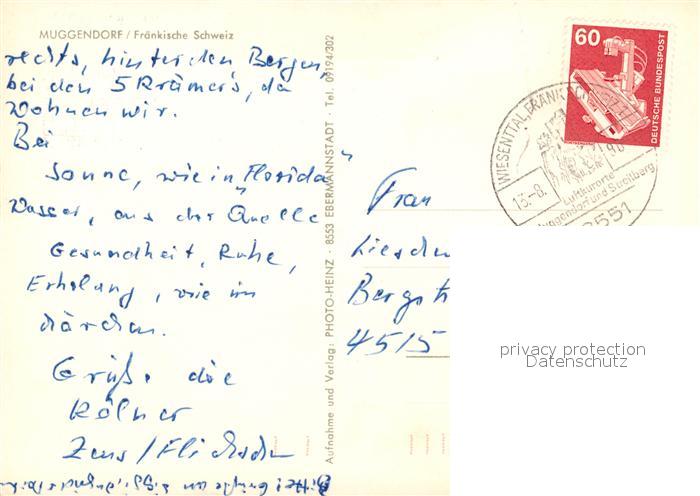 MUGGENDORF / Fränkische Schweiz
rechts, hinter den Bergen,
bei den 5 Krämer's, da
Wohnen wir.
Bei
Sonne, wie in Florida"
Wasser, aus der "Quelle
Gesundheit, Ruhe,
Erholung, wie im
Märchen.
Grüße die
Kölner
Zens /
Bitte! Grüße an
Aufnahme und Verlag: PHOTO-HEINZ · 8553 EBERMANNSTADT · Tel. 09194/302
60
DEUTSCHE BUNDESPOST
WIESENTTAL, FRÄNK. SCHWEIZ
13.-8.
Luftkurorte
Muggendorf und Streitberg
8551
Frau
Bergstr
4515
privacy protection
Datenschutz